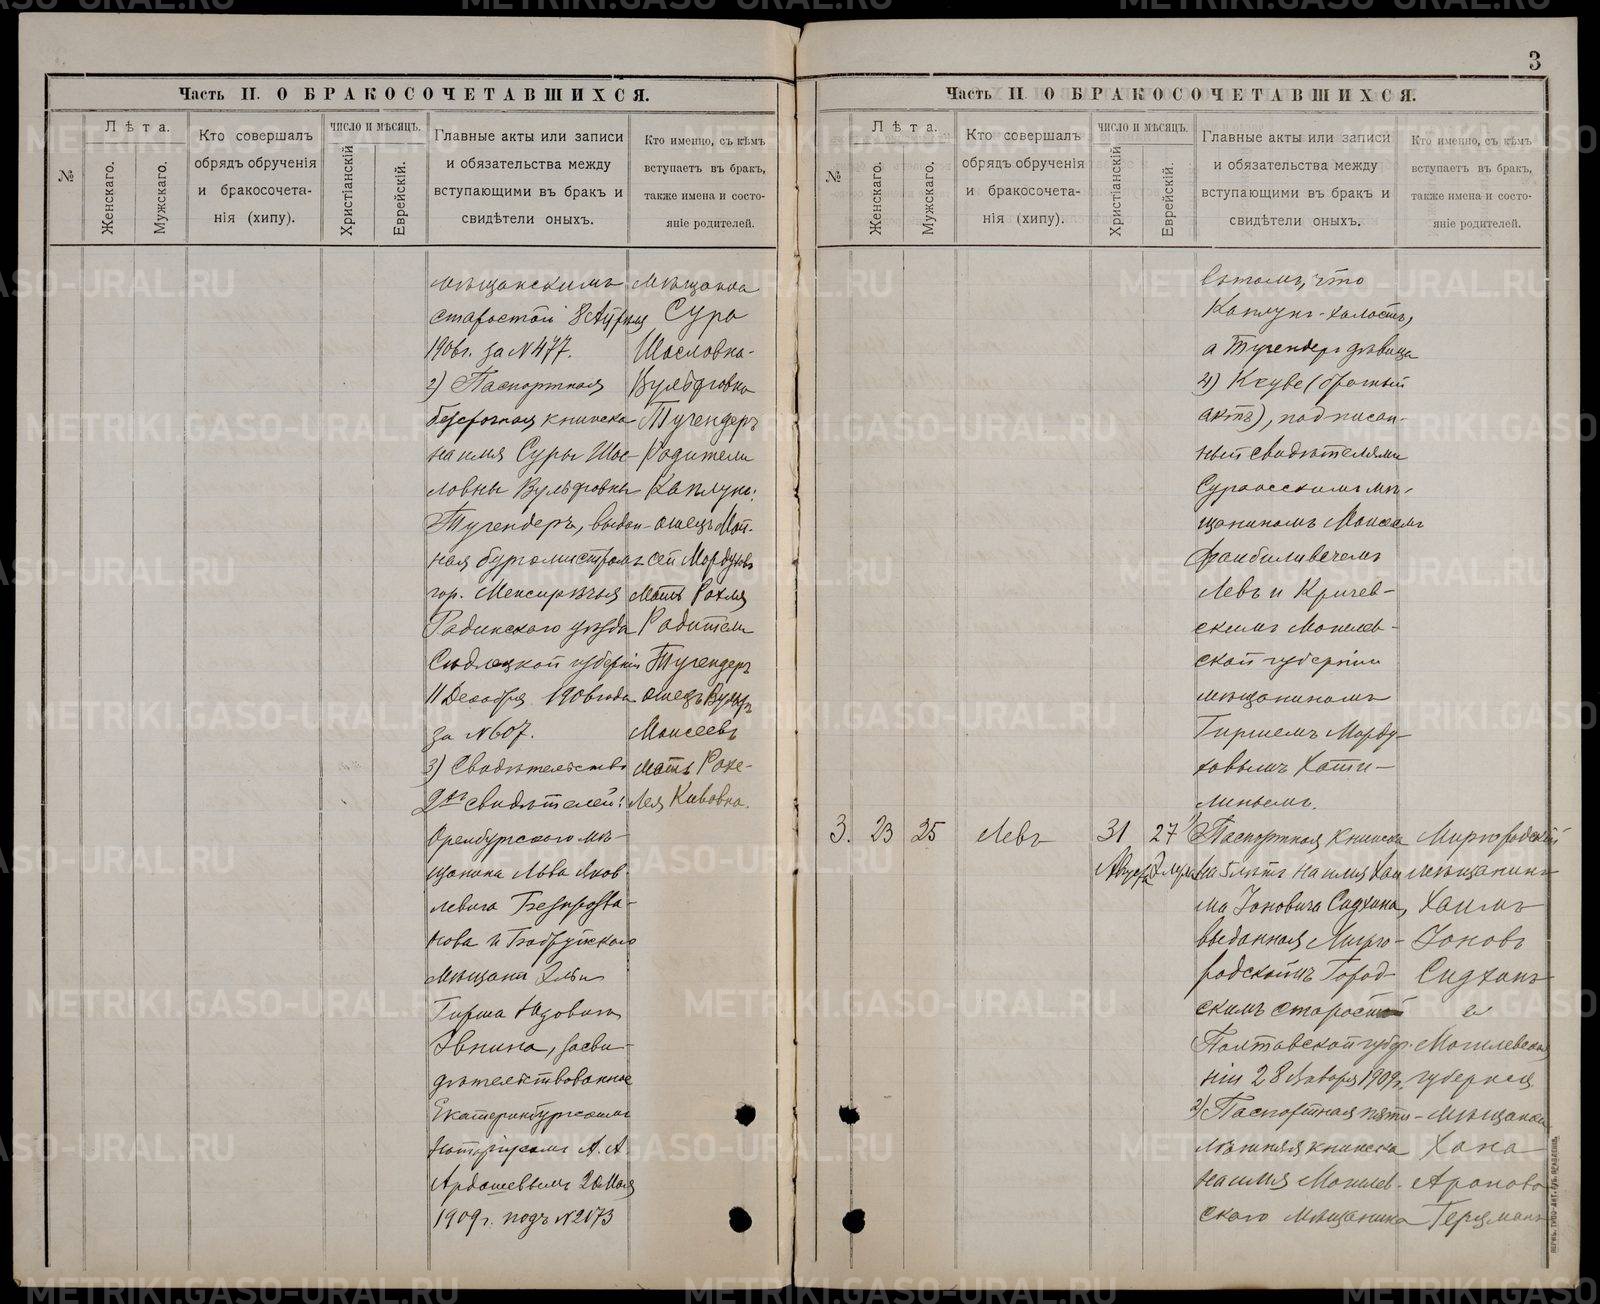 Часть II. О БРАКОСОЧЕТАВШИХСЯ.
№
Лѣта.
Женскаго.
Мужскаго.
Кто совершалъ
обрядъ обрученія
и бракосочета-
нія (хипу).
число и мѣсяцъ.
Христіанскій
Еврейскій.
Главные акты или записи
и обязательства между
вступающими въ бракъ и
свидѣтели оныхъ.
Кто именно, съ кѣмъ
вступаетъ въ бракъ,
также имена и состо-
яніе родителей.
мѣщанскимъ
старостой
190 г. за №477.
2) Паспортная
безсрочная книжка
на имя Суры Шос-
ловны Вульфовны
Тугендеръ, выдан-
ная бургомистромъ
гор. Межирѣчья
Радинскаго уѣзда
Сѣдлецкой губерніи
11 Декабря 1906 года
за №607.
3) Свидѣтельство
2хъ свидѣтелей:
Оренбургскаго мѣ-
щанина Льва Яков-
левича
нова и Бобруйскаго
мѣщан
Гирша
Евнина, засви-
дѣтельствованное
Екатеринбургскимъ
Нотаріусомъ А. А.
Ардашевымъ Мая
1909 г. подъ №2173
мѣщанка
Сура
Шословна-
Вульфовна
Тугендеръ
Родители
Каплунъ:
отецъ Мой-
сей Мордуховъ
мать Рахля
Родители
Тугендеръ
отецъ Вульфъ
Моисеевъ
мать Рохе-
Лея Кивовна.
3
Часть II. О БРАКОСОЧЕТАВШИХСЯ.
№
Лѣта.
Женскаго.
Мужскаго.
Кто совершалъ
обрядъ обрученія
и бракосочета-
нія (хипу).
число и мѣсяцъ.
Христіанскій
Еврейскій.
Главные акты или записи
и обязательства между
вступающими въ бракъ и
свидѣтели оныхъ.
Кто именно, съ кѣмъ
вступаетъ въ бракъ,
также имена и состо-
яніе родителей.
въ томъ, что
Каплунъ-холостъ,
а Тугендеръ дѣвица
4) Ксубе (брачный
актъ), подписан-
ный свидѣтелями
Суражскимъ мѣ-
щаниномъ Моисеемъ
Левъ и Кричев-
скимъ Могилев-
ской губерніи
мѣщаниномъ
Гиршемъ Морду-
ховымъ Хати-
линымъ.
3. 23 25 Левъ 31 27
Паспортная книжка
на 5 лѣтъ на имя Хаи
ма Іоновича Сидхина,
выданная Мирго-
родскимъ Город-
скимъ старостой
Полтавской губер-
ніи 28 Января 1909 г.
2) Паспортная пяти-
лѣтняя книжка
на имя Могилев-
скаго мѣщанина
Миргородскій
мѣщанинъ
Хаимъ
Іоновъ
Сидхинъ
и
Могилевской
губерніи
мѣщанка
Хана
Аронова
Герцманъ
METRIKI.GASO-URAL.RU